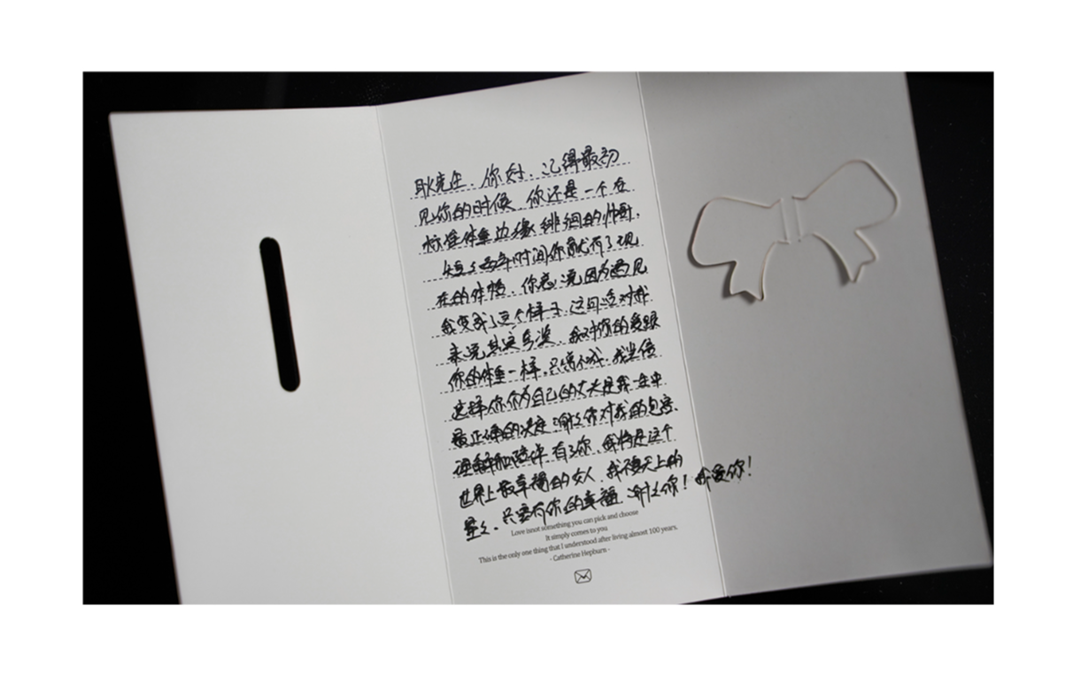 耿先生，你好，记得最初
见你的时候，你还是一个在
标准体重边缘徘徊的帅哥，
短短两年时间你就有了现
在的体格，你总说因为遇见
我变成了这个样子，这句话对我
来说其实多余，我对你的爱跟
你的体重一样，只增不减，我坚信
选择你作为自己的丈夫是我一生中
最正确的决定，谢谢你对我的包容，
理解和陪伴，有了你，我将是这个
世界上最幸福的女人，我不要天上的
星星，只要有你的幸福，谢谢你！我爱你！
Love isnot something you can pick and choose
It simply comes to you
This is the only one thing that I understood after living almost 100 years.
- Catherine Hepburn -